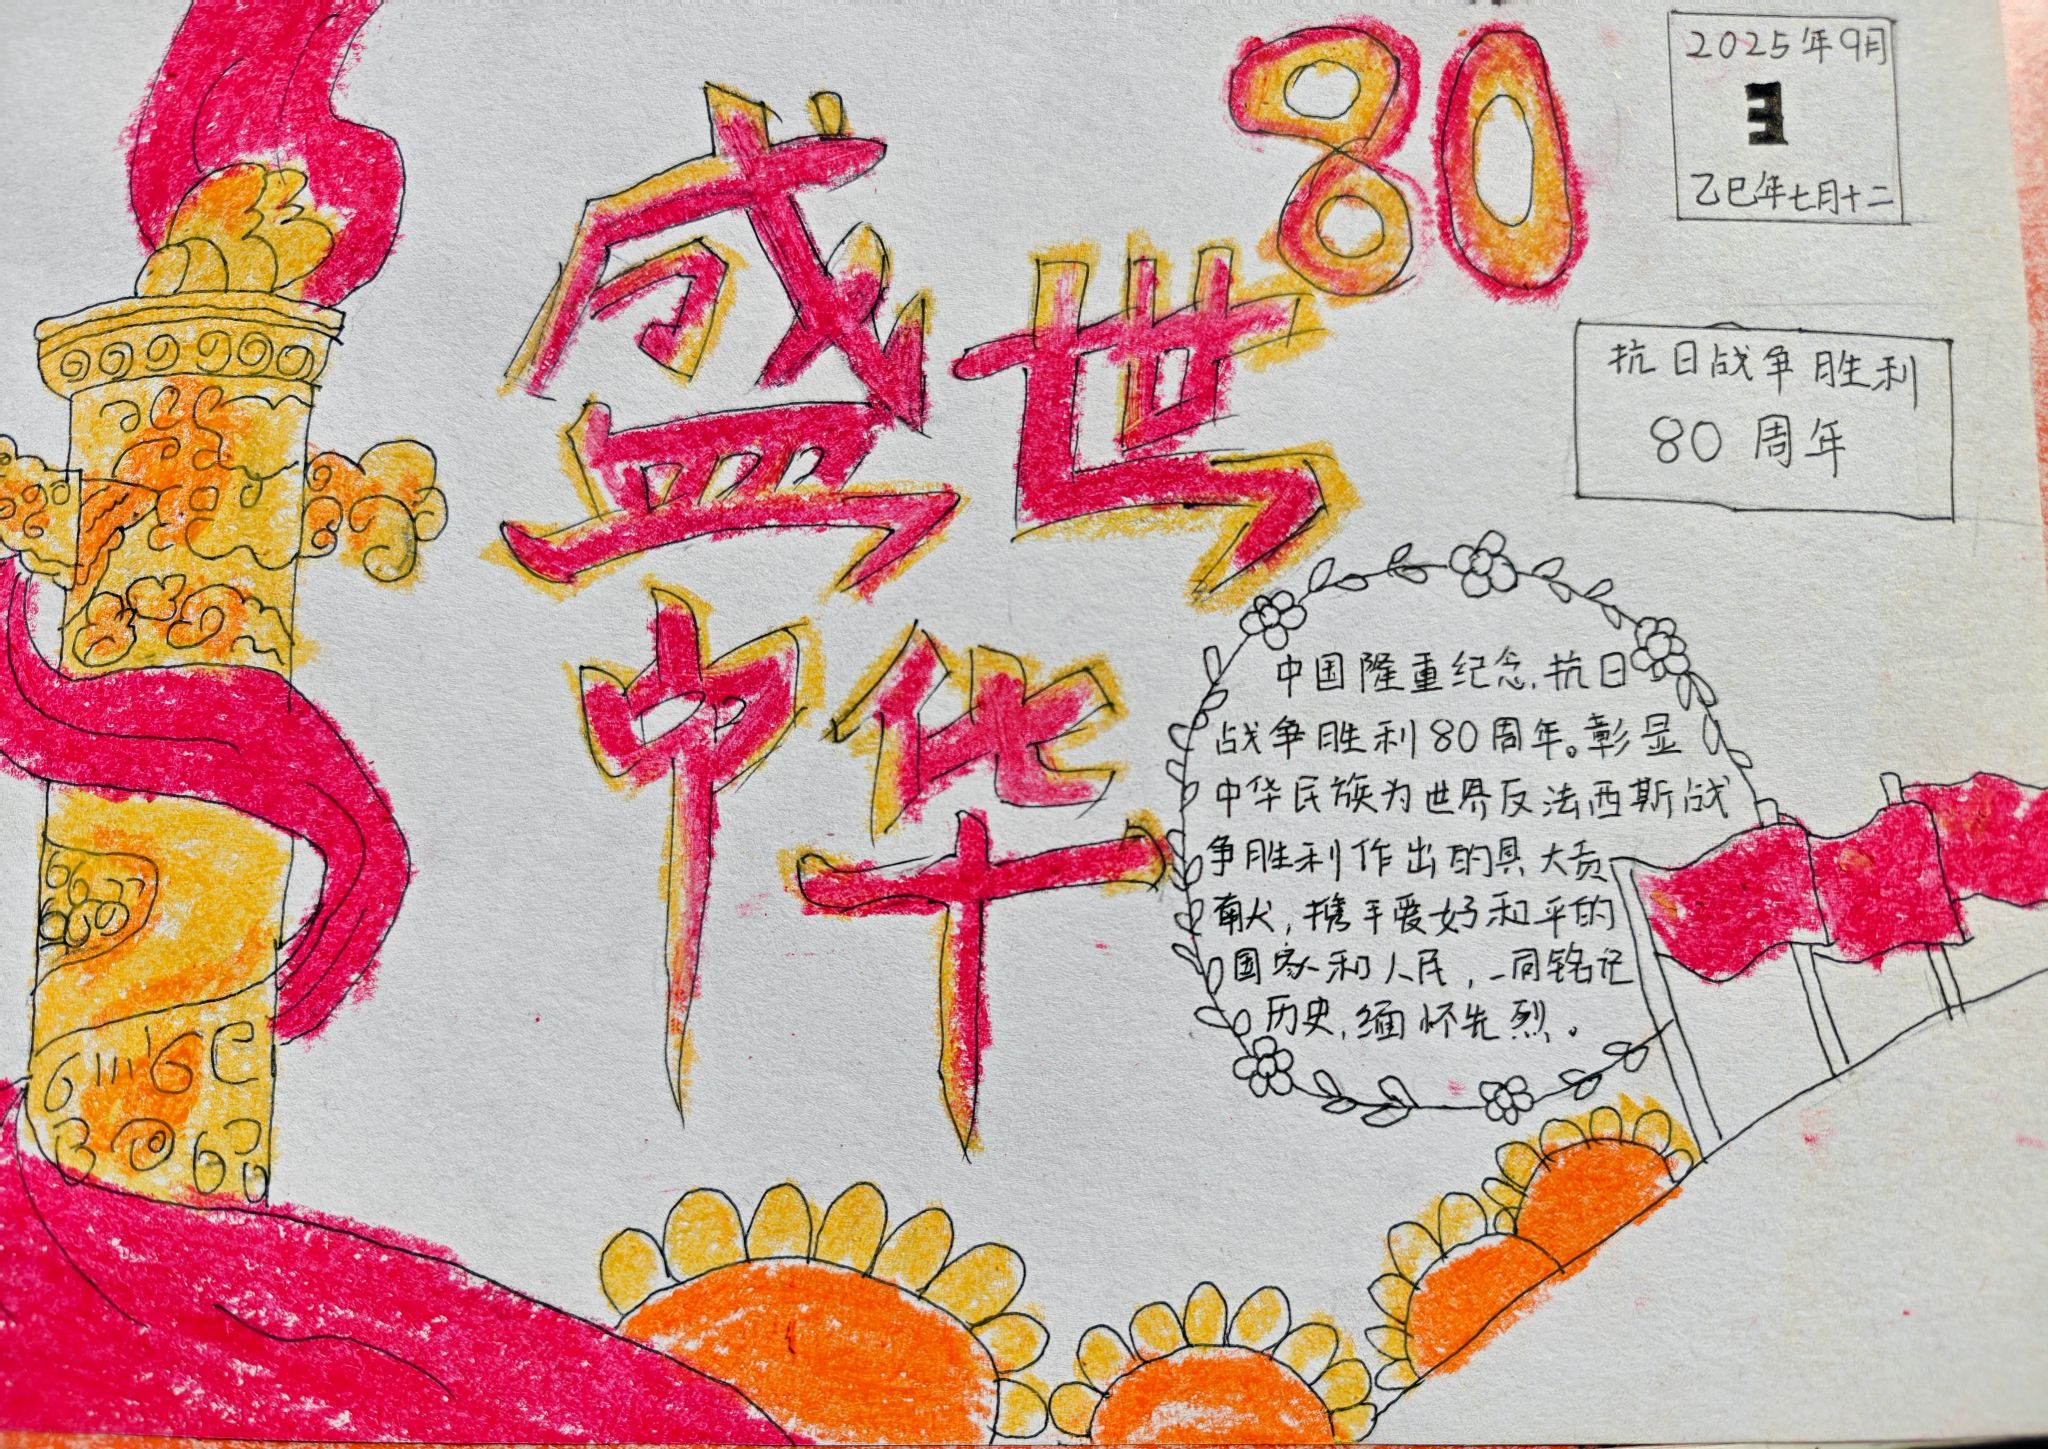 盛世
中华
80
2025年9月
3
乙巳年七月十二
抗日战争胜利
80周年
中国隆重纪念,抗日
战争胜利80周年。彰显
中华民族为世界反法西斯战
争胜利作出的具大贡
献,携手爱好和平的
国家和人民,一同铭记
历史,缅怀先烈。